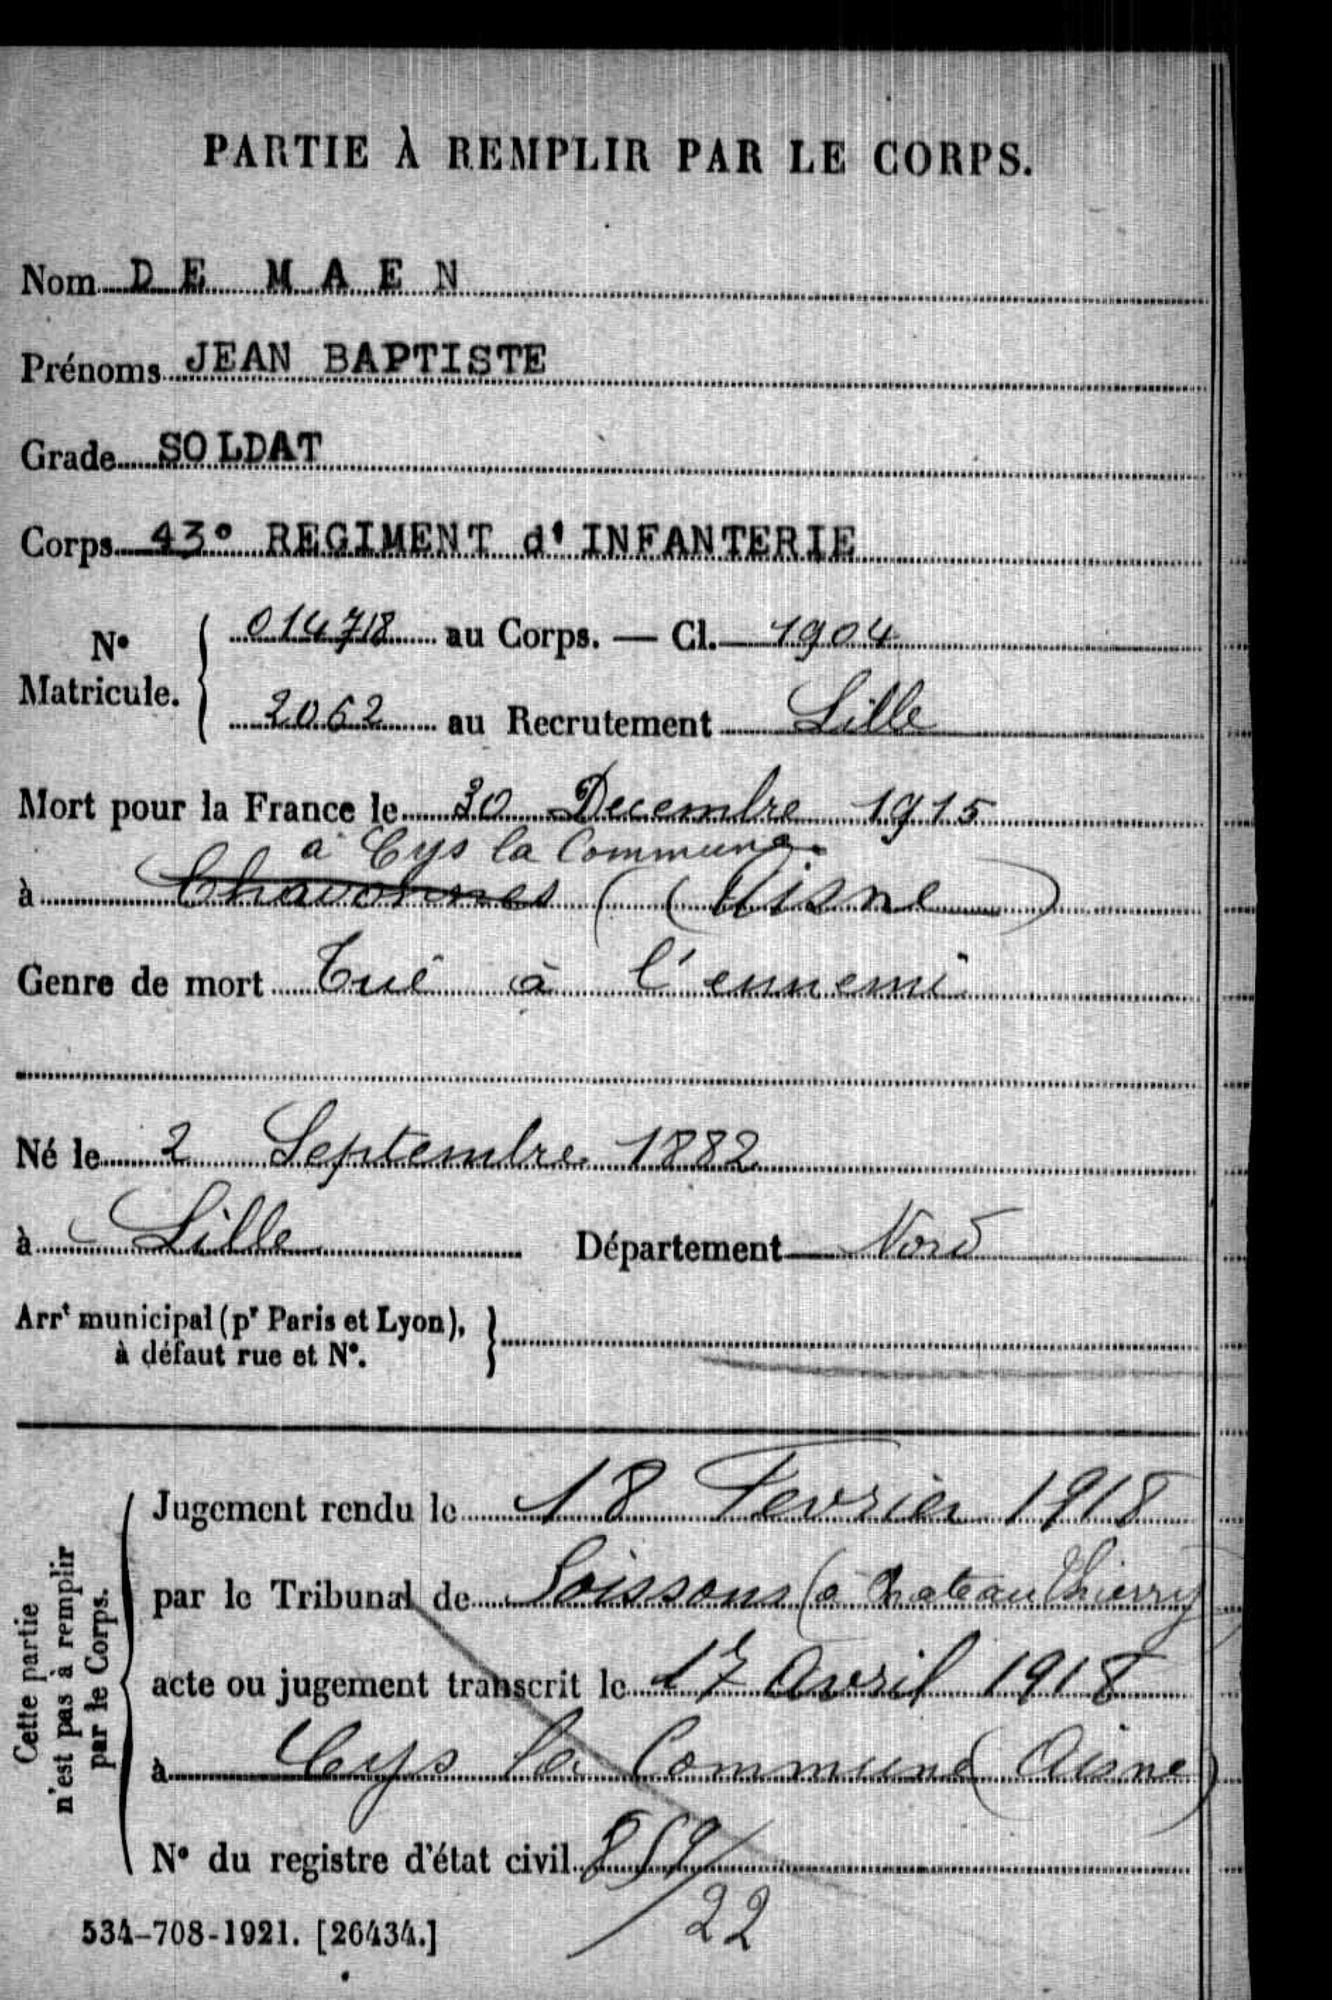 PARTIE À REMPLIR PAR LE CORPS.
Nom DE MAEN
Prénoms JEAN BAPTISTE
Grade SOLDAT
Corps 43° REGIMENT d'INFANTERIE
N° Matricule. { 014718 au Corps. — Cl. 1904
2062 au Recrutement Lille
Mort pour la France le 30 Decembre 1915
à Cys la Commune
à Chavonnes (Aisne)
Genre de mort Tué à l'ennemi
Né le 2 Septembre 1882
à Lille Département Nord
Arrt municipal (pr Paris et Lyon),
à défaut rue et N°.
Cette partie
n'est pas à remplir
par le Corps.
Jugement rendu le 18 Fevrier 1918
par le Tribunal de Soissons (à Chateau Thierry)
acte ou jugement transcrit le 17 Avril 1918
à Cys la Commune (Aisne)
N° du registre d'état civil 859/22
534-708-1921. [26434.]